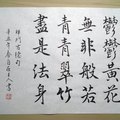 鬱鬱黃花
無非般若
青青翠竹
盡是法身